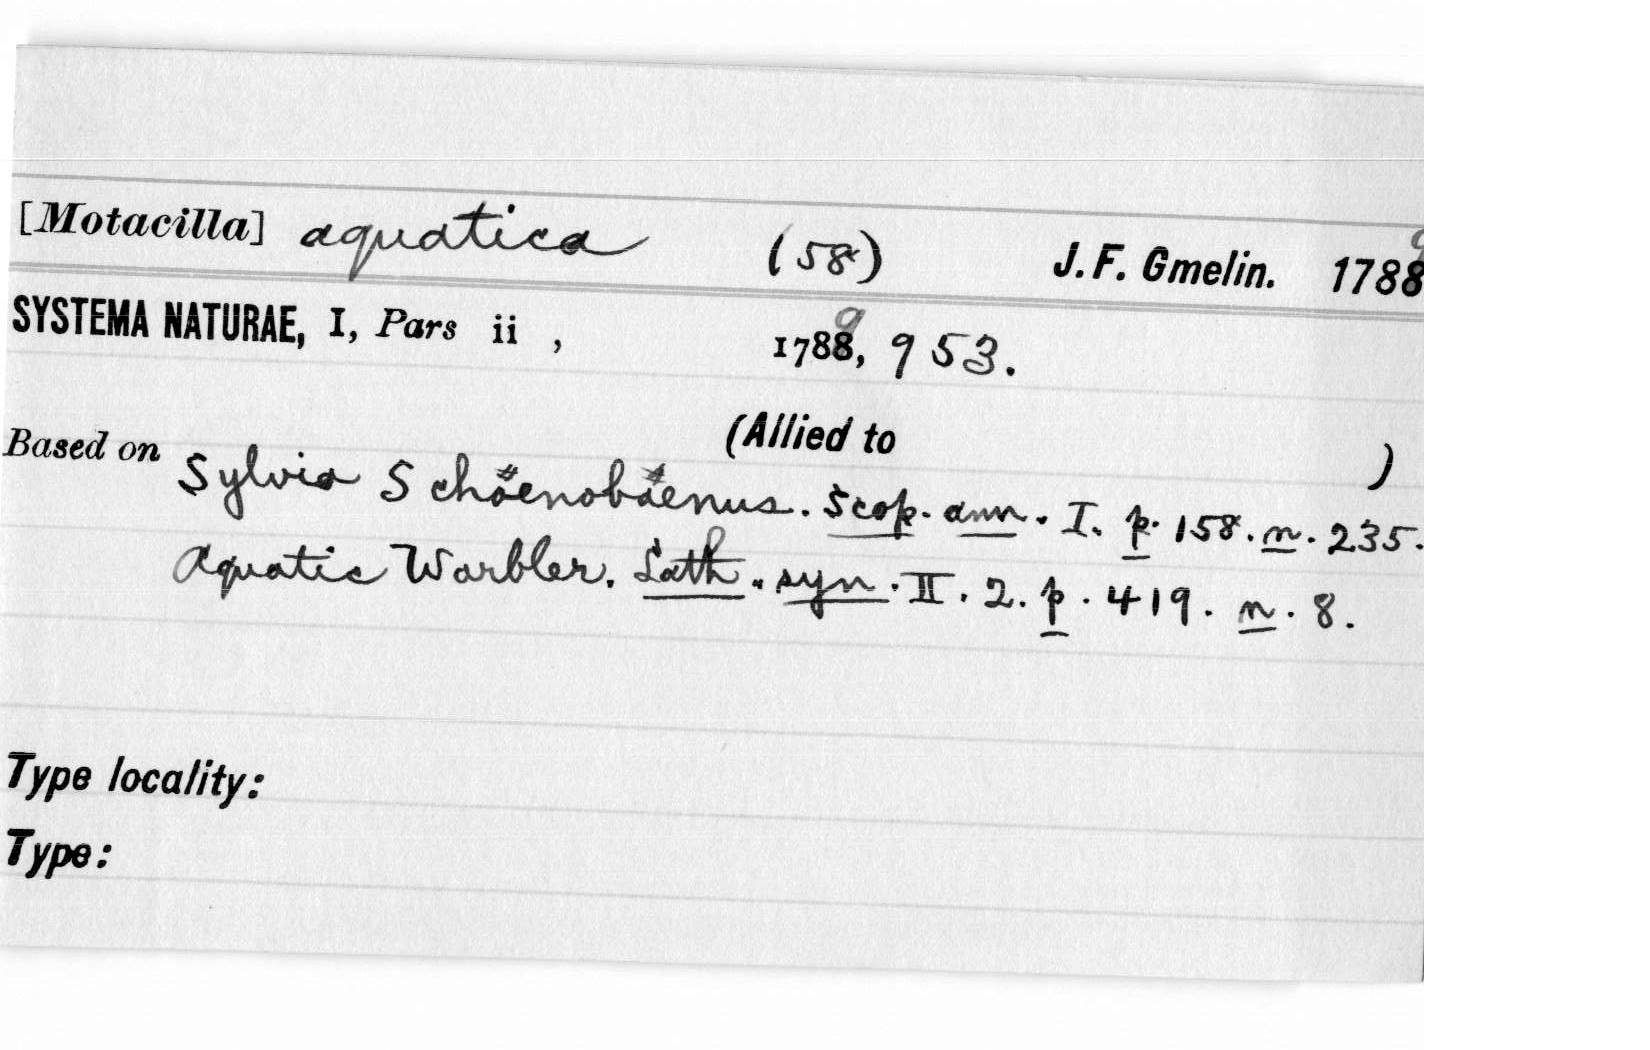 [Motacilla] aquatica (58) J. F. Gmelin. 17889
SYSTEMA NATURAE, I, Pars ii , 17889, 953.
(Allied to )
Based on Sylvia Schöenobäenus. Scop. ann. I. p. 158. n. 235.
Aquatic Warbler. Lath. syn. II. 2. p. 419. n. 8.
Type locality:
Type: